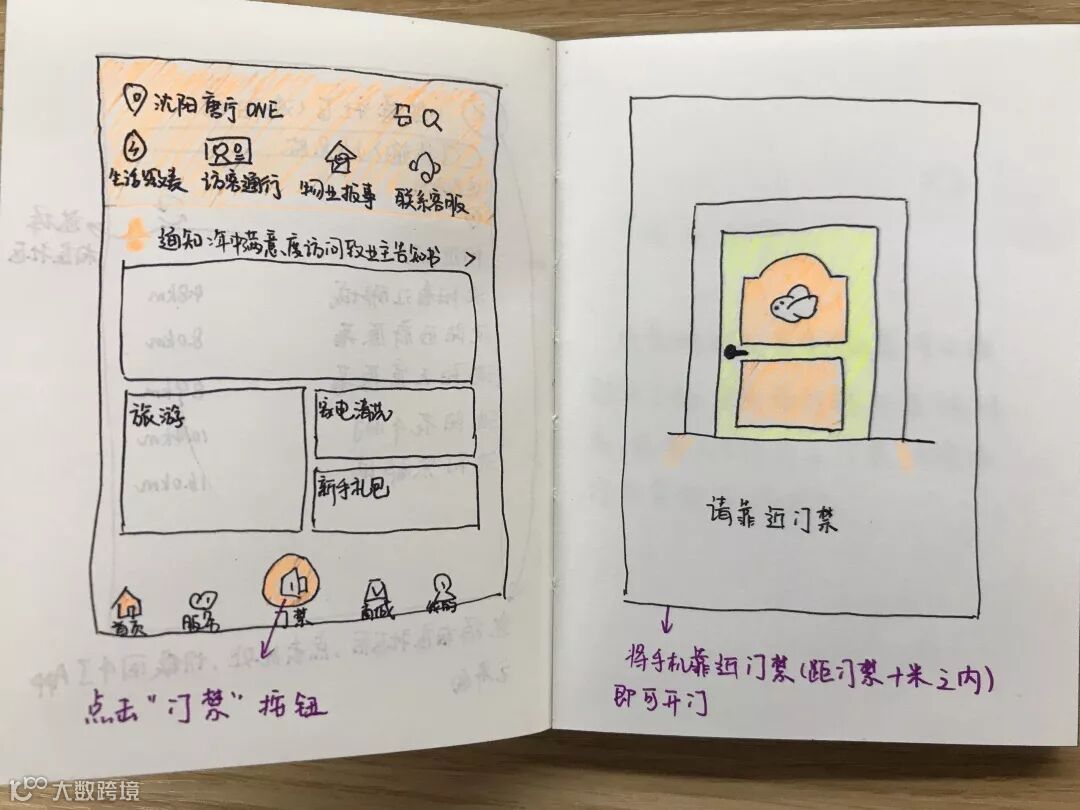 沈阳唐宁ONE
生活缴费 访客通行 物业报事 联系客服
通知 年中满意度访问致业主告知书 >
旅游
家电清洗
新手礼包
首页 服务 门禁 商城 我的
点击“门禁”按钮
请靠近门禁
将手机靠近门禁(距门禁十米之内)
即可开门
4.8km
8.0km
16.0km
大数跨境